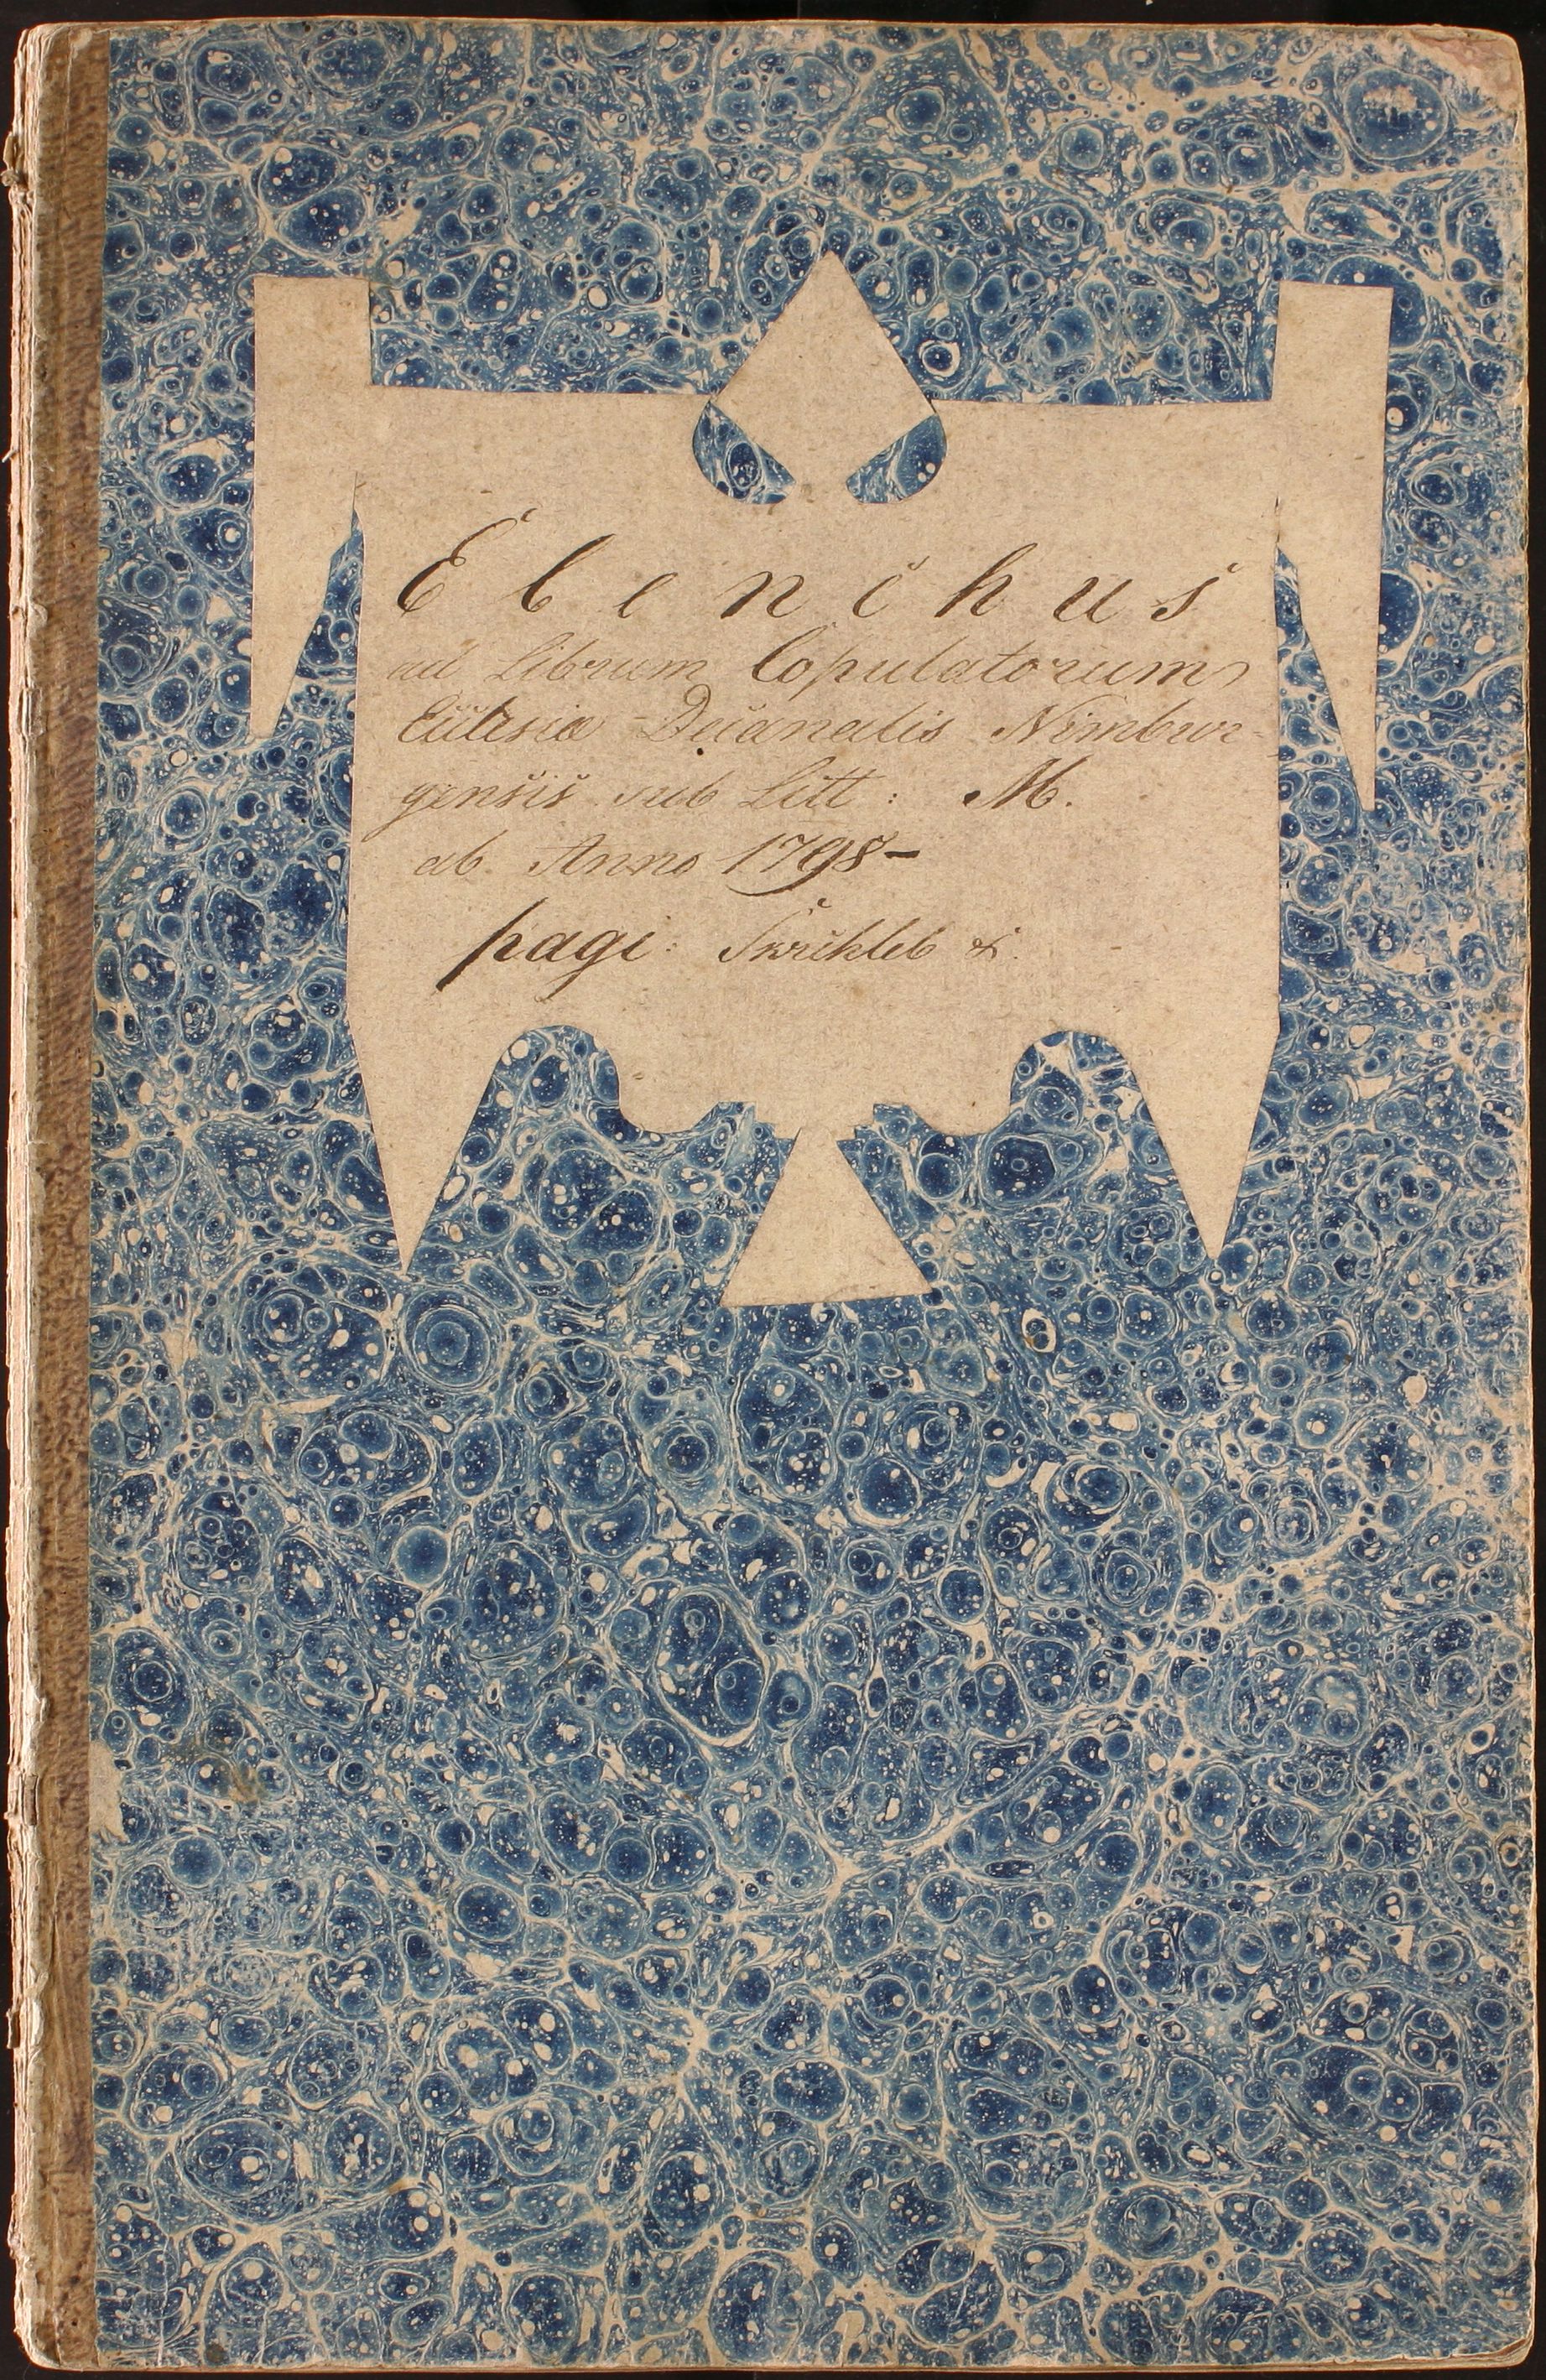 Elenchus
ad Librum Copulatorum
Ecclesiæ Decanalis Nimbur-
gensis sub Litt: M.
ab Anno 1798-
pagi: &.